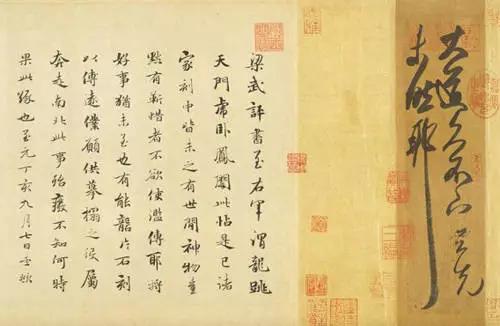 大道久不下与先
未然耶
梁武評書至右軍謂龍跳
天門虎臥鳳閣此帖是已諸
家刻中皆未之有世間神物豈
默有靳惜者不欲使濫傳耶將
好事猶未至也有能龍片石刻
以傳遠僕願供摹搨之役屬
奔走南北此事殆廢不知何時
果此緣也至元丁亥九月七日孟頫